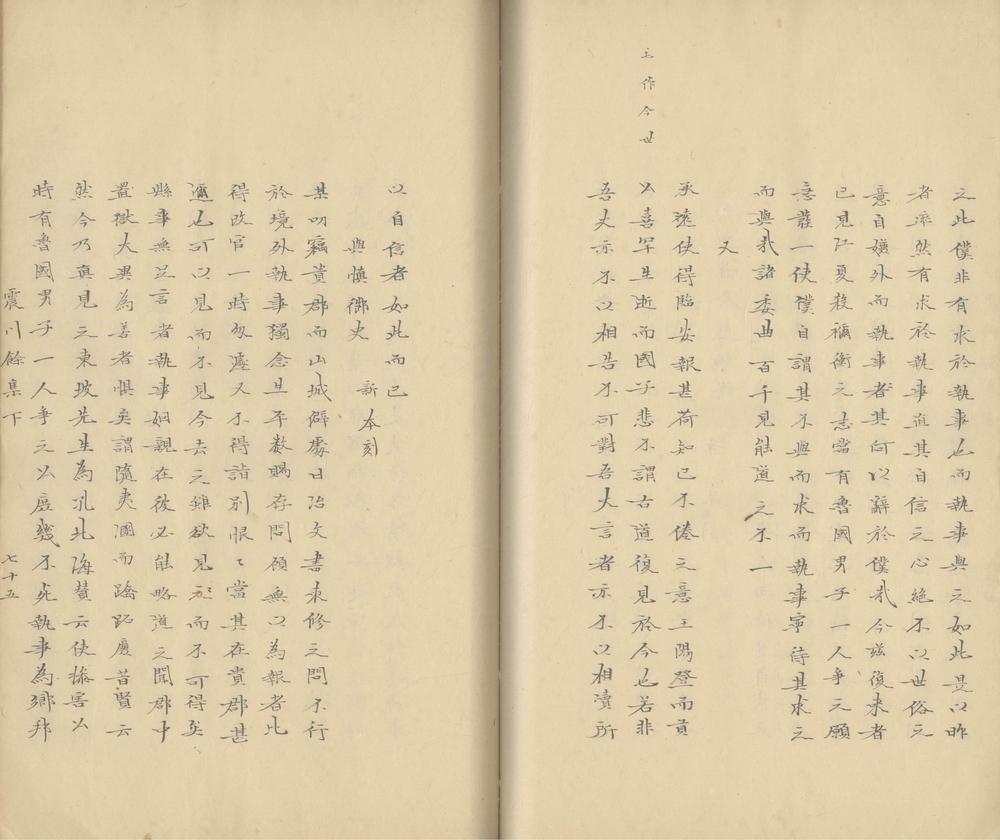 之此僕非有求於執事也而執事與之如此是以昨
者率然有求於執事進其自信之心絶不以世俗之
意自嫌外而執事者其何以辭於僕哉今玆復來者
已見江夏殺禰衡之志當有魯國男子一人爭之願
悉護一使僕自謂其不與而求而執事寧待其求之
而與哉諸委曲百千見能道之不一
又
承遠使得臨安報甚荷知已不倦之意王陽登而貢
公喜罕生逝而國子悲不謂古道復見於今也若非
吾丈亦不以相告不可對吾大言者亦不以相瀆所
王作今世
以自信者如此而已
與慎御史 新本刻
某叨竊貴郡而山城僻處日治文書束修之問不行
於境外執事獨念旦平數賜存問顧無以為報者比
得改官一時匆遽又不得詣別恨〻當其在貴郡甚
邇也可以見而不見今去之雖欲見之而不可得矣
縣事無足言者執事姻親在彼必能略道之聞郡中
置獄大異為善者懼矣謂隨夷溷而蹻跖廉昔賢云
然今乃真見之東坡先生為孔北海贊云使操害公
時有魯國男子一人爭之公庶幾不死執事為鄉邦
震川餘集下 七十五